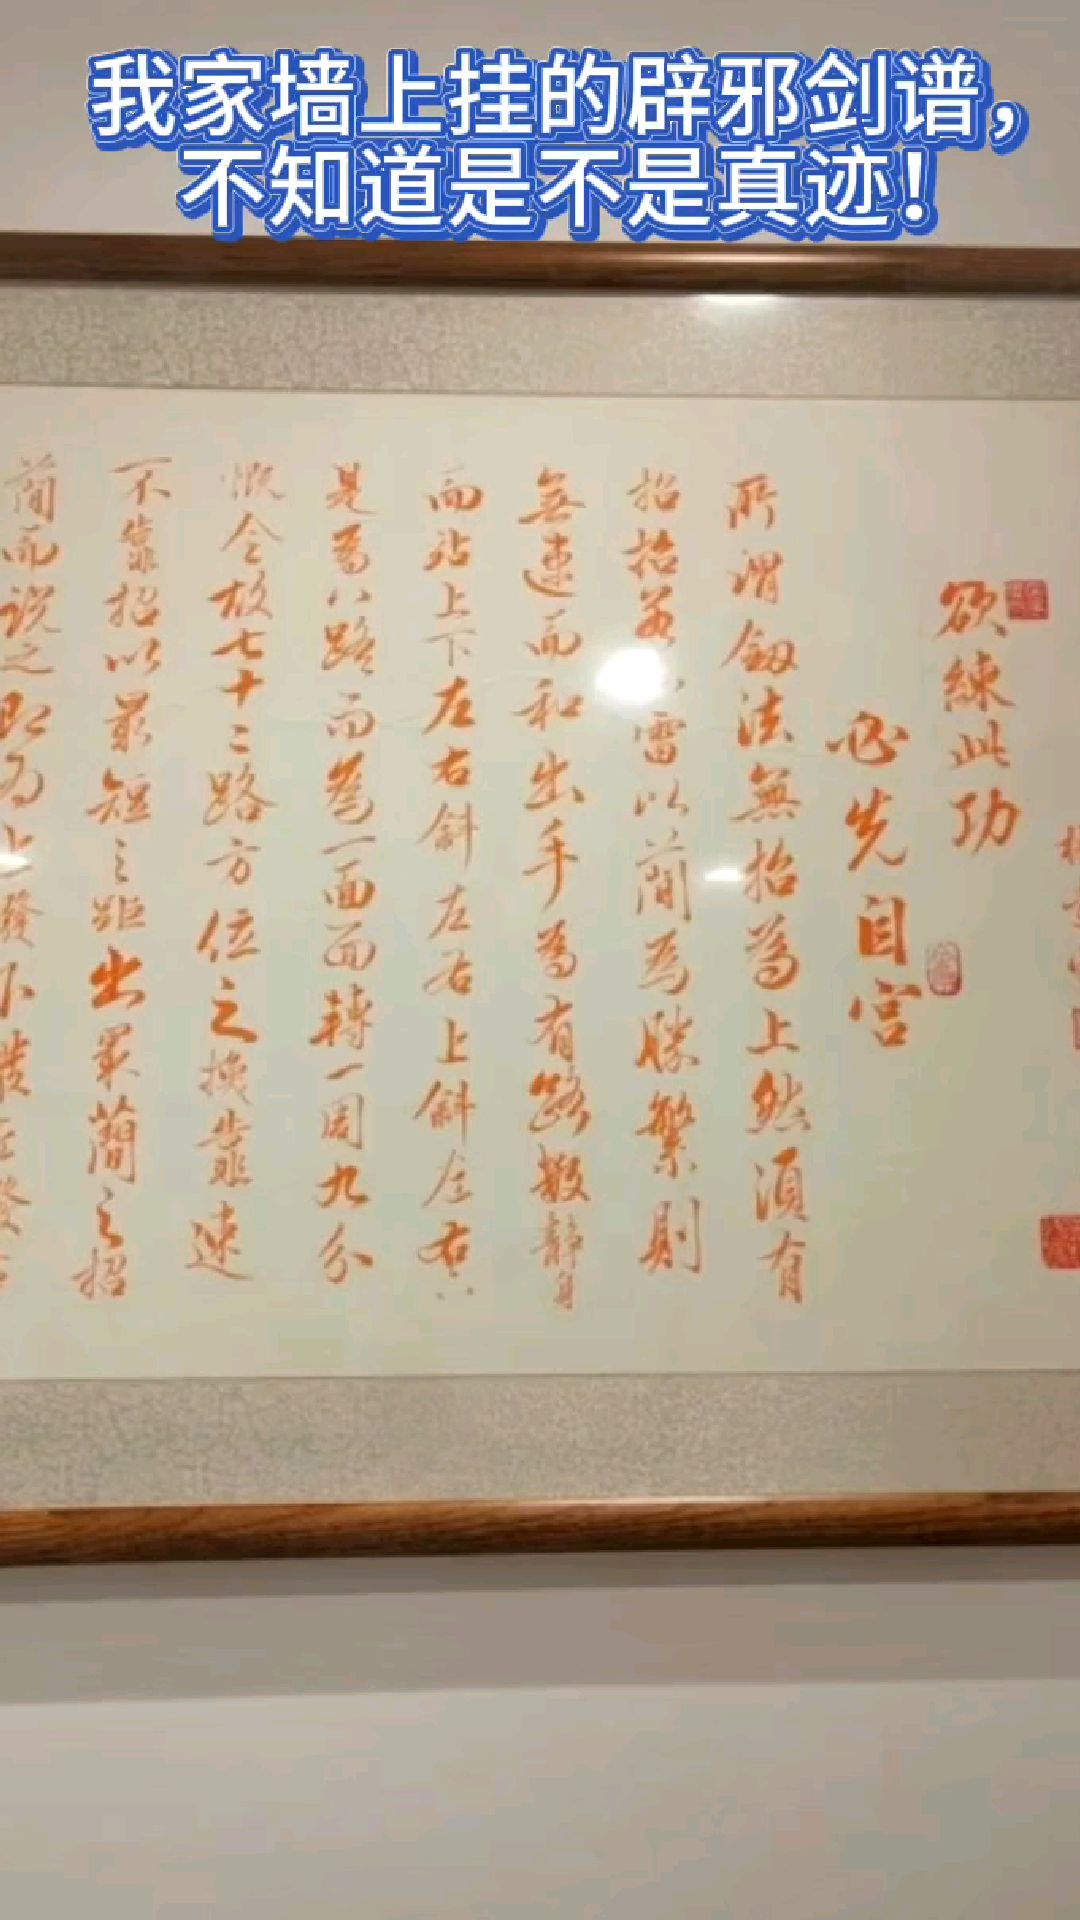 我家墙上挂的辟邪剑谱，
不知道是不是真迹！
欲練此功
必先自宫
所谓剑法無招為上然須有
招招若雷以簡為勝繁則
無速而和出手為有路数静身
而站上下左右斜左右上斜左右六
是為八路而為一面面轉一周九分
慨令故七十二路方位之換靠速
不靠招以最短之距出最簡之招
簡而说之即為上發下發左發右